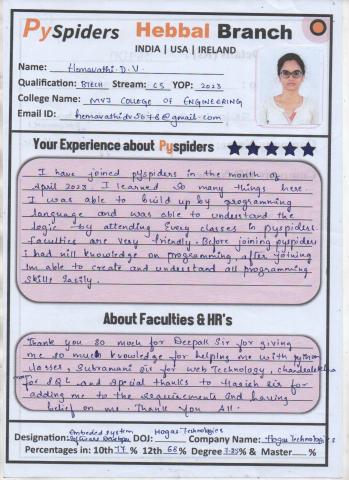 PySpiders Hebbal Branch
INDIA | USA | IRELAND
Name: Hemavathi D.V.
Qualification: BTECH Stream: CS YOP: 2023
College Name: MVJ COLLEGE OF ENGINEERING
Email ID: hemavathidv5678@gmail.com
Your Experience about Pyspiders
I have joined pyspiders in the month of
April 2023. I learned so many things here.
I was able to build up by programming
language and was able to understand the
logic by attending Every classes in pyspiders.
Faculties are very friendly. Before joining pyspiders
i had nill knowledge on programming, after joining
Im able to create and understand all programming
skills Easily.
About Faculties & HR's
Thank you so much for Deepak Sir for giving
me so much knowledge for helping me with python
classes, Subramani Sir for web Technology, chandralekha
for SQL and special thanks to Harish sir for
adding me to the requirements and having
belief on me. Thank You All.
Embeded System Hogar Technologies
Designation: Software Developer DOJ: Company Name: Hogar Technologies
Percentages in: 10th 77 % 12th 68 % Degree % & Master %